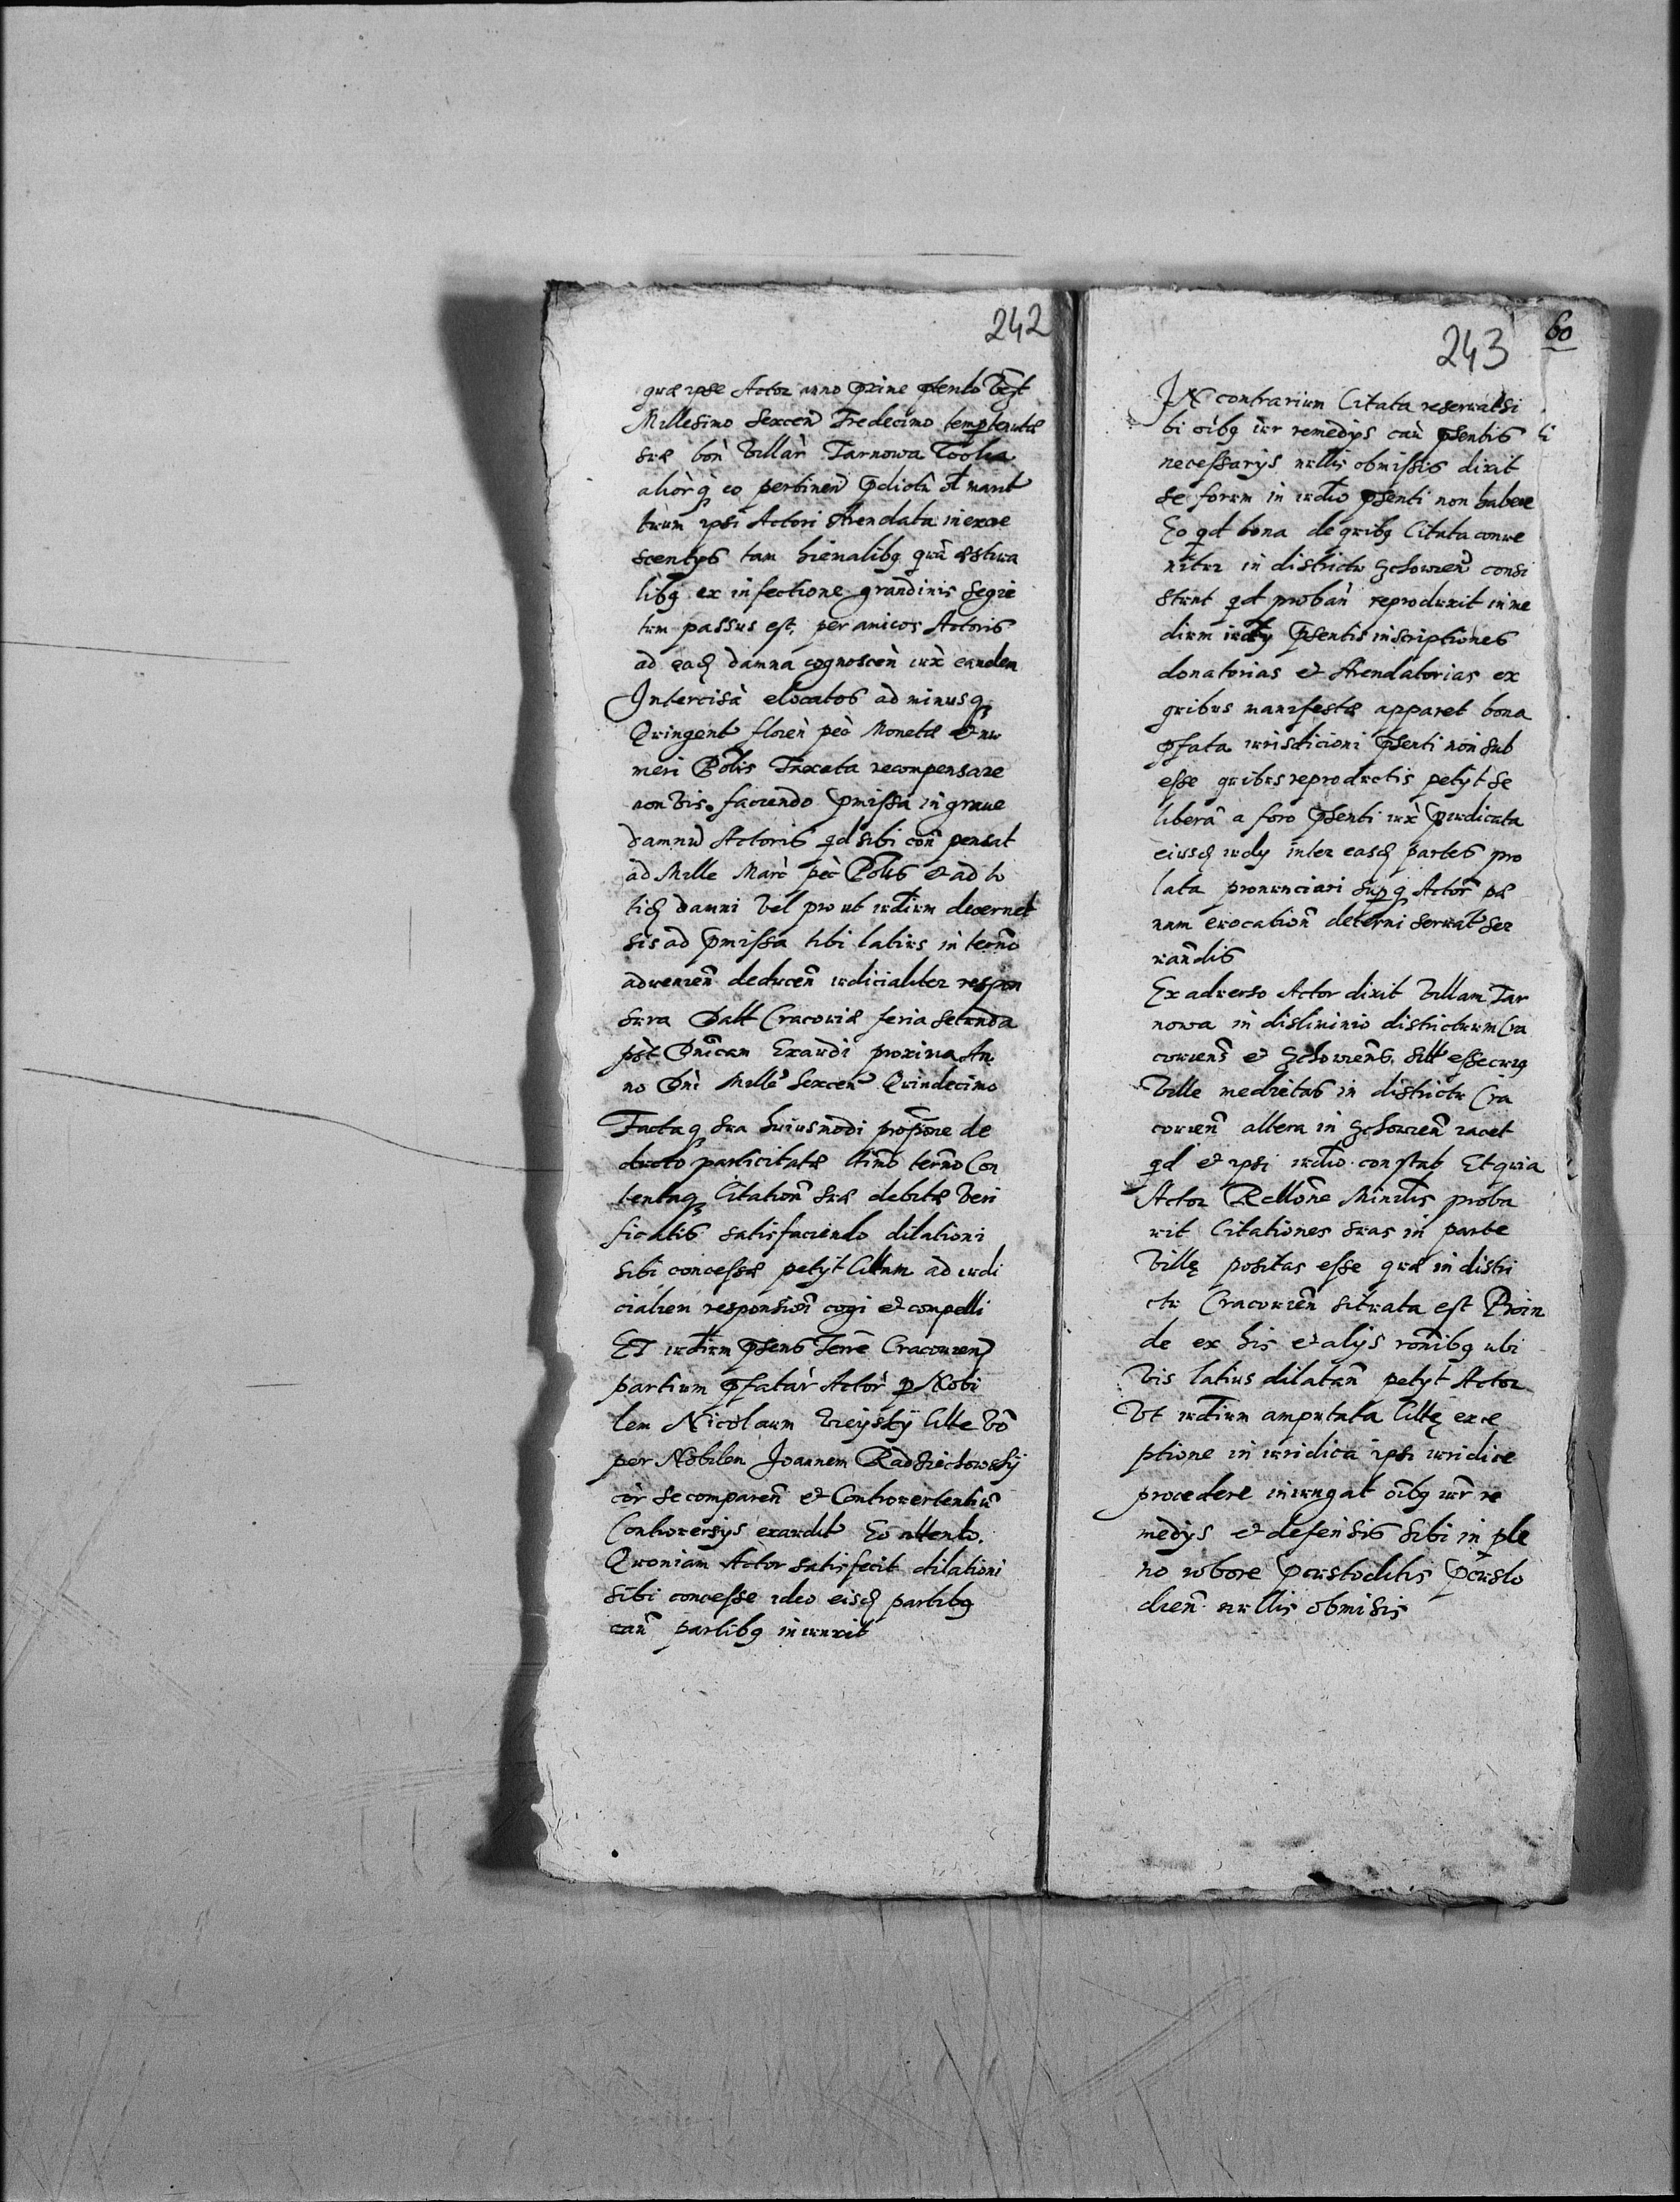 242
quæ ipse Actor anno proxime
Millesimo Sexcen Tredecimo temp tenutæ
suæ bon Villar Tarnowa Wolia
alior q eo pertinen
ipsi Actori Arendata in excre
scentys tam hiemalibq qua æstiua
libq ex infectione grandinis segie
tum passus est, per amicos Actoris
ad damna cognoscen iux eandem
Intercisa elocatos ad minus q
Quingent floren pec Monetæ et nu
meri Polis Taxata recompensare
non vis. faciendo pmissa in graue
damnu Actoris qd sibi con pensat
ad Mille Marc pec Polis et ad to
tid damni vel pro ut iudium decernet
sis ad pmissa tibi latius in termo
aduenien deducen iudicialiter respon
sura Datt Cracouiæ feria secunda
post Dnicam Exaudi proxima An
no Dni Mille Sexcen Quindecimo
Facta q sua huiusmodi propone de
ducto participatæ termo Con
tentaq Citation suæ debitæ veri
ficatis satisfaciendo dilationi
sibi concessæ petyt Cittam ad iudi
cialem responsion cogi et compelli
Et iudium psens Terre Cracouien
partium pfatar Actor p Nobi
lem Nicolaum Citte vo
per Nobilem Joannem Radziechowsky
cor se comparen et Controuertentiu
Controuersys exaudit Eo attento.
Quoniam Actor satisfecit dilationi
sibi concesse ideo eisd partibq
partibq iniunxit
243
60
IN contrarium Citata reseruatsi
bi oibq iur remedys cau psentis
necessarys nullis obmissis dixit
se forum in iudio psenti non habere
Eo qd bona de quibq Citata conue
nitur in districtu consi
stunt qd proban reproduxit in me
dium iudy psentis inscriptiones
donatorias et Arendatorias ex
quibus manifestæ apparet bona
pfata iurisdicioni psenti non sub
esse quibus reproductis petyt se
libera a foro psenti iux piudicata
eiusd iudy inter easd partes pro
lata pronunciari sup q Actor pæ
nam euocation decerni seruat ser
uandis
Ex aduerso Actor dixit Villam Tar
nowa in dislimitio districtuum Cra
couiens et esse cuiq
Ville medietas in districtu Cra
couien altera in iacet
qd et ipsi iudio constat Et quia
Actor Rellone Minilis proba
uit Citationes suas in parte
Villę positas esse quæ in distri
ctu Cracouien situata est Proin
de ex his et alys ronibq ubi
vis latius dilatan petyt Actor
Vt iudium amputata Cittę exce
ptione in iuridica ipsi iuridice
procedere iniungat oibq iur re
medys et defensis sibi in ple
no robore pcustoditis pcusto
dien nullis obmisis